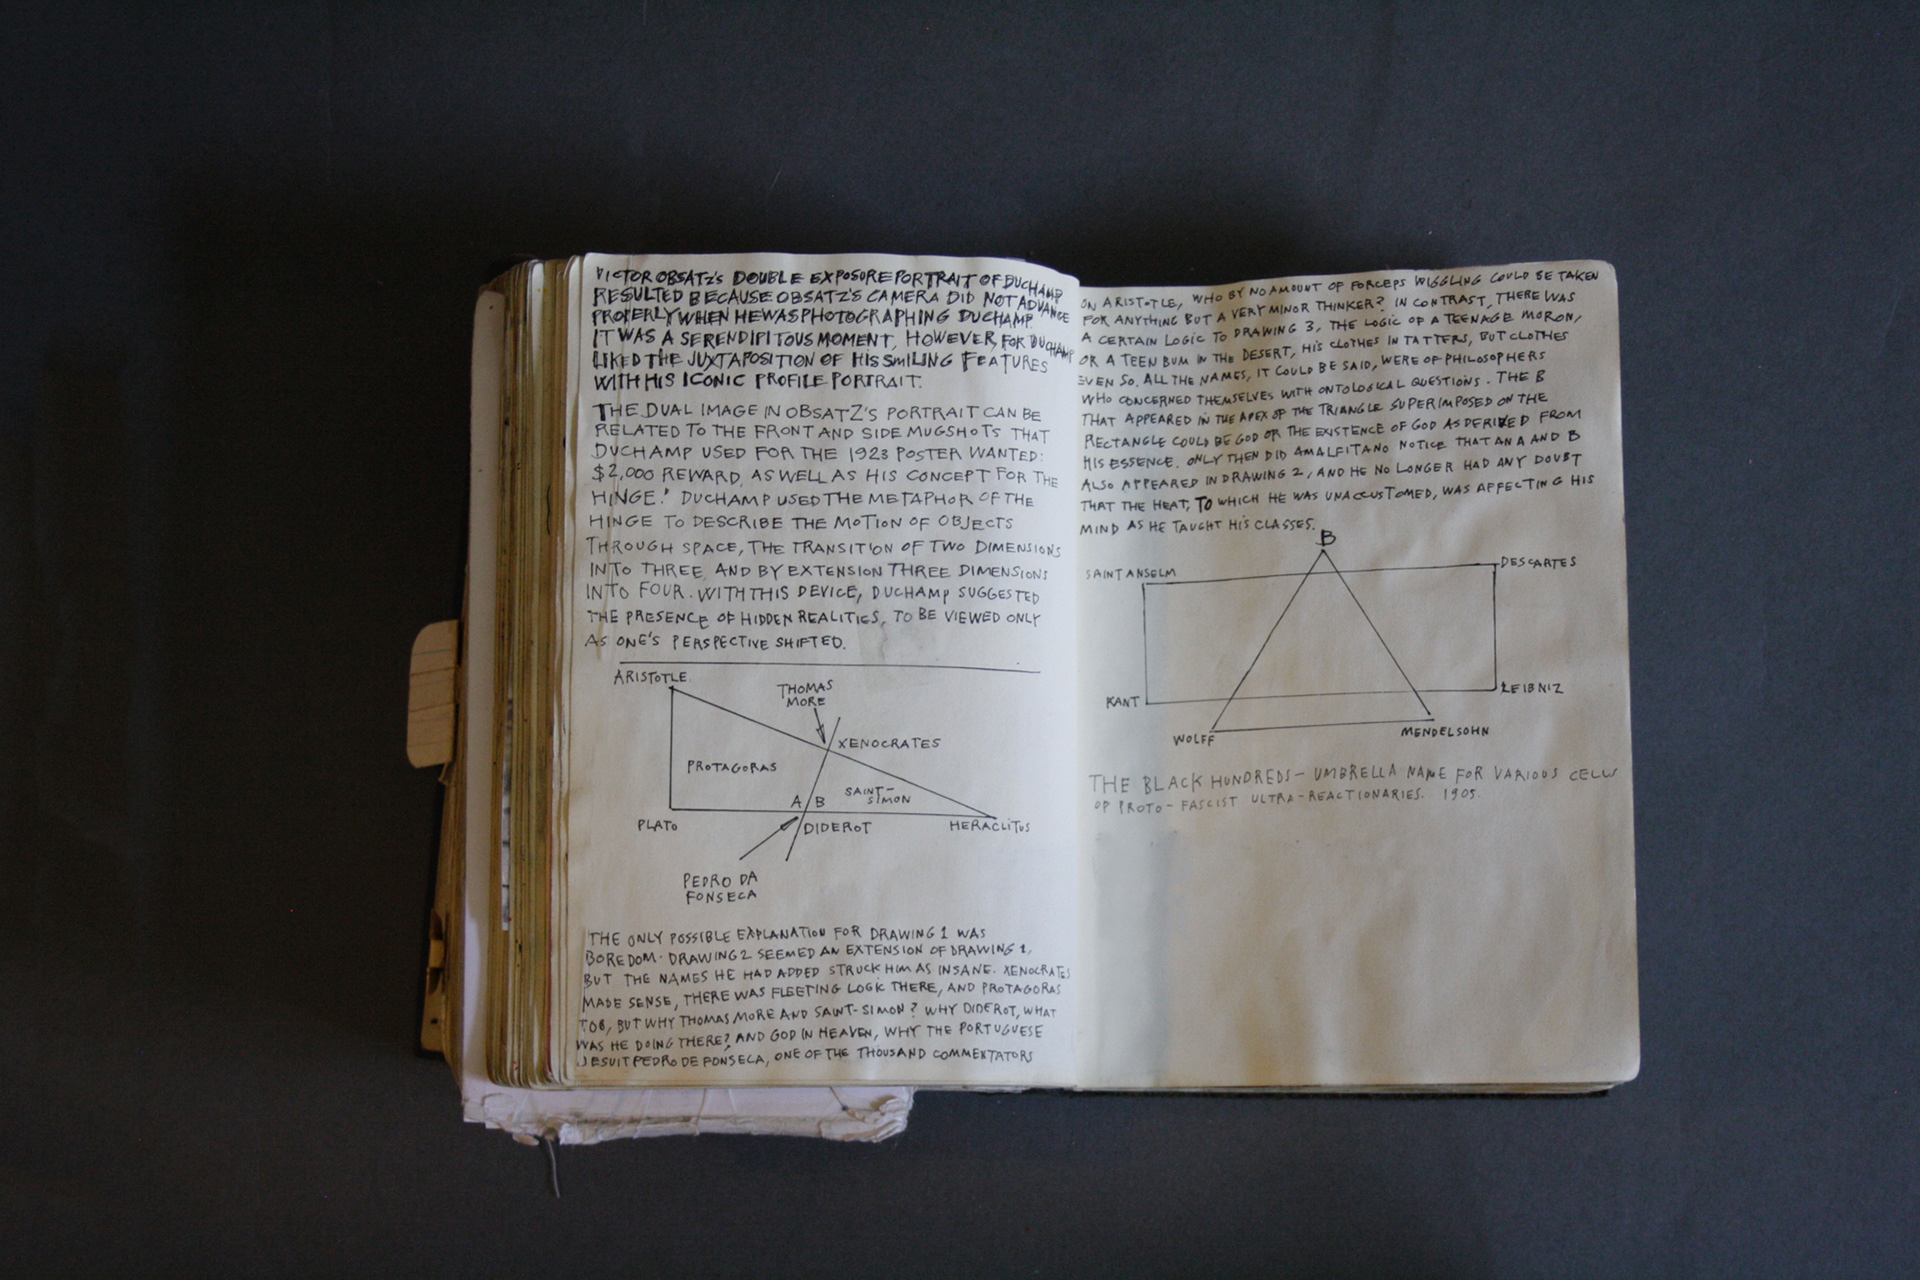 VICTOR OBSATZ'S DOUBLE EXPOSURE PORTRAIT OF DUCHAMP
RESULTED BECAUSE OBSATZ'S CAMERA DID NOT ADVANCE
PROPERLY WHEN HE WAS PHOTOGRAPHING DUCHAMP.
IT WAS A SERENDIPITOUS MOMENT, HOWEVER, FOR DUCHAMP
LIKED THE JUXTAPOSITION OF HIS SMILING FEATURES
WITH HIS ICONIC PROFILE PORTRAIT.
THE DUAL IMAGE IN OBSATZ'S PORTRAIT CAN BE
RELATED TO THE FRONT AND SIDE MUGSHOTS THAT
DUCHAMP USED FOR THE 1923 POSTER WANTED:
$2,000 REWARD, AS WELL AS HIS CONCEPT FOR THE
HINGE.' DUCHAMP USED THE METAPHOR OF THE
HINGE TO DESCRIBE THE MOTION OF OBJECTS
THROUGH SPACE, THE TRANSITION OF TWO DIMENSIONS
INTO THREE, AND BY EXTENSION THREE DIMENSIONS
INTO FOUR. WITH THIS DEVICE, DUCHAMP SUGGESTED
THE PRESENCE OF HIDDEN REALITIES, TO BE VIEWED ONLY
AS ONE'S PERSPECTIVE SHIFTED.
ARISTOTLE
THOMAS
MORE
XENOCRATES
PROTAGORAS
SAINT-
SIMON
A B
PLATO
DIDEROT
HERACLITUS
PEDRO DA
FONSECA
THE ONLY POSSIBLE EXPLANATION FOR DRAWING 1 WAS
BOREDOM. DRAWING 2 SEEMED AN EXTENSION OF DRAWING 1,
BUT THE NAMES HE HAD ADDED STRUCK HIM AS INSANE. XENOCRATES
MADE SENSE, THERE WAS FLEETING LOGIC THERE, AND PROTAGORAS
TOO, BUT WHY THOMAS MORE AND SAINT-SIMON? WHY DIDEROT, WHAT
WAS HE DOING THERE? AND GOD IN HEAVEN, WHY THE PORTUGUESE
JESUIT PEDRO DE FONSECA, ONE OF THE THOUSAND COMMENTATORS
ON ARISTOTLE, WHO BY NO AMOUNT OF FORCEPS WIGGLING COULD BE TAKEN
FOR ANYTHING BUT A VERY MINOR THINKER? IN CONTRAST, THERE WAS
A CERTAIN LOGIC TO DRAWING 3, THE LOGIC OF A TEENAGE MORON,
OR A TEEN BUM IN THE DESERT, HIS CLOTHES IN TATTERS, BUT CLOTHES
EVEN SO. ALL THE NAMES, IT COULD BE SAID, WERE OF PHILOSOPHERS
WHO CONCERNED THEMSELVES WITH ONTOLOGICAL QUESTIONS. THE B
THAT APPEARED IN THE APEX OF THE TRIANGLE SUPERIMPOSED ON THE
RECTANGLE COULD BE GOD OR THE EXISTENCE OF GOD AS DERIVED FROM
HIS ESSENCE. ONLY THEN DID AMALFITANO NOTICE THAT AN A AND B
ALSO APPEARED IN DRAWING 2, AND HE NO LONGER HAD ANY DOUBT
THAT THE HEAT, TO WHICH HE WAS UNACCUSTOMED, WAS AFFECTING HIS
MIND AS HE TAUGHT HIS CLASSES.
B
SAINT ANSELM
DESCARTES
KANT
LEIBNIZ
WOLFF
MENDELSOHN
THE BLACK HUNDREDS - UMBRELLA NAME FOR VARIOUS CELLS
OF PROTO-FASCIST ULTRA-REACTIONARIES. 1905.